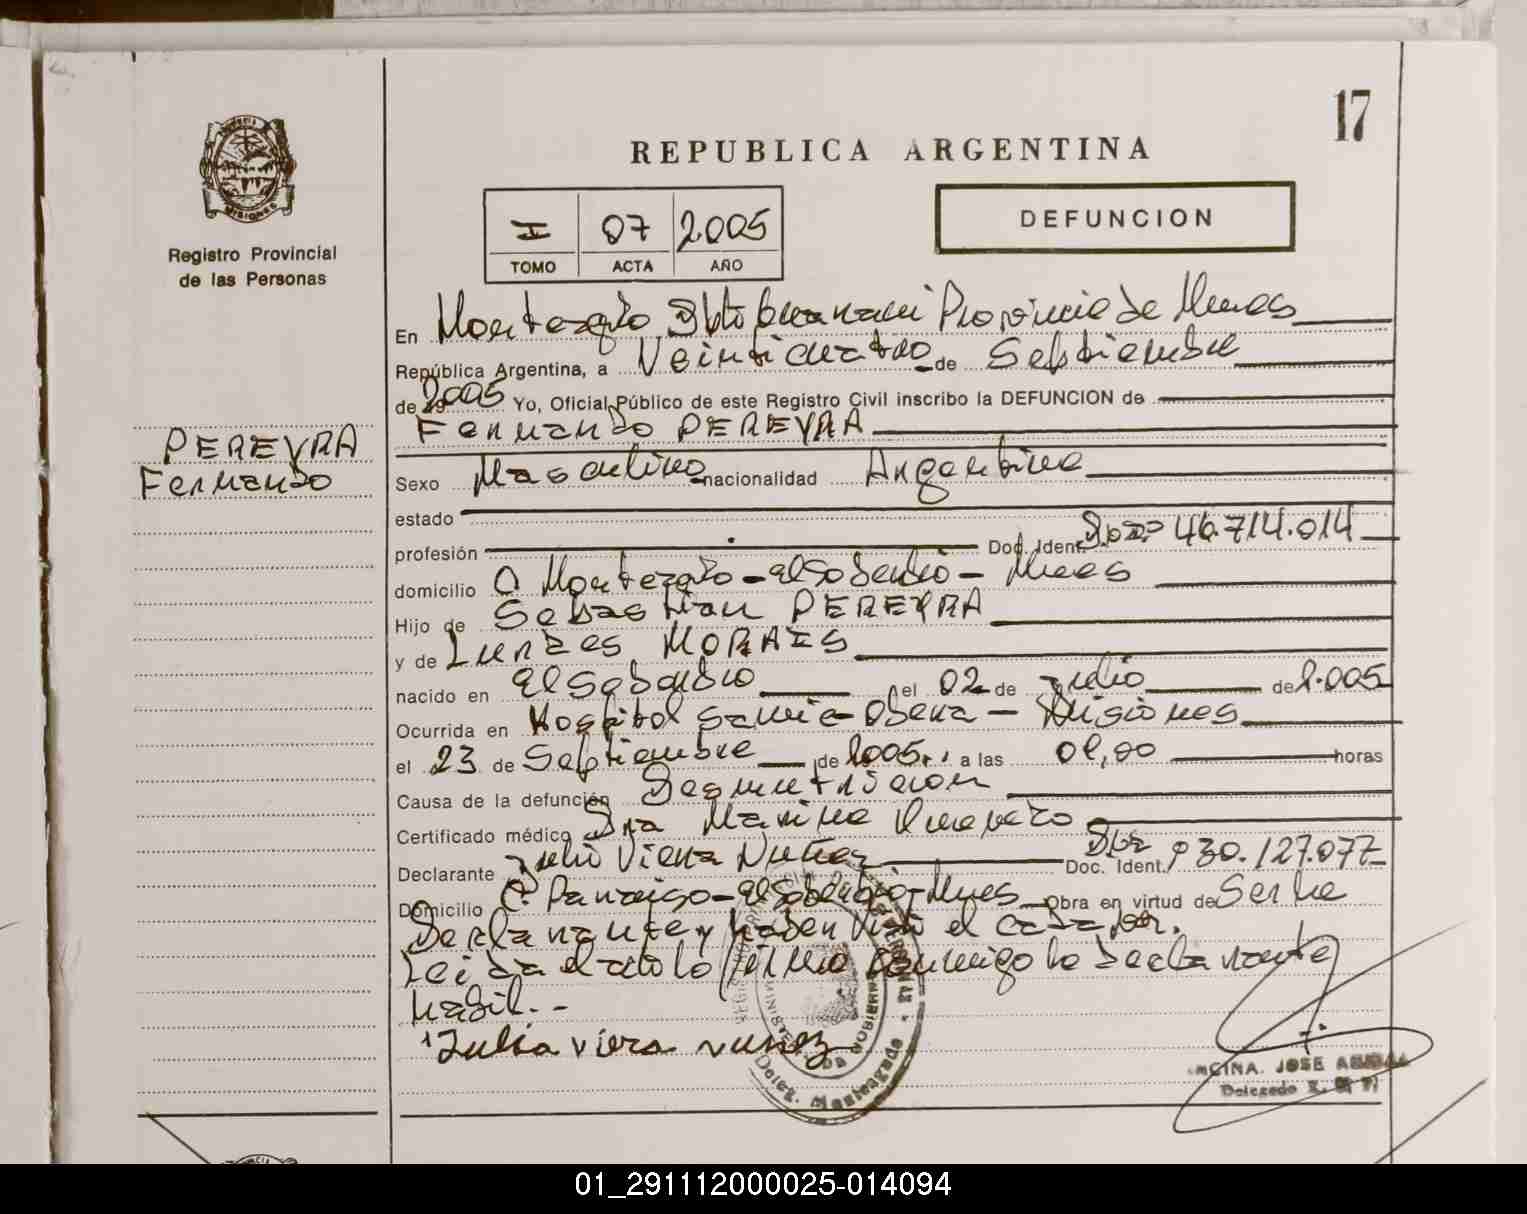 17
REPUBLICA ARGENTINA
MISIONES
Registro Provincial
de las Personas
I 07 2005
TOMO ACTA AÑO
DEFUNCION
En Monteagudo Dpto Guarani Provincia de Mnes
República Argentina, a Veinticuatro de Septiembre
de 19 2005 Yo, Oficial Público de este Registro Civil inscribo la DEFUNCION de
Fernando PEREYRA
PEREYRA
Fernando
Sexo Masculino nacionalidad Argentina
estado
profesión Doc. Ident. 46.714.014
domicilio C Monteagudo - El Soberbio - Mnes
Hijo de Sebastian PEREYRA
y de Lurdes MORAIS
nacido en El Soberbio el 02 de Julio de 2.005
Ocurrida en Hospital Samic - Obera - Misiones
el 23 de Septiembre de 2005 a las 01,00 horas
Causa de la defunción Desnutricion
Certificado médico Dra Marina
Declarante Julio Viera Nuñez Doc. Ident. 30.127.077
Domicilio C. Paraiso - El Soberbio - Mnes Obra en virtud de Ser la
Declarante y haber visto el cadaver.
Leida el acta la firma conmigo la declarante
habil. -
Julia viera nunez
Deleg. Monteagudo
JOSE
Delegado
01_291112000025-014094